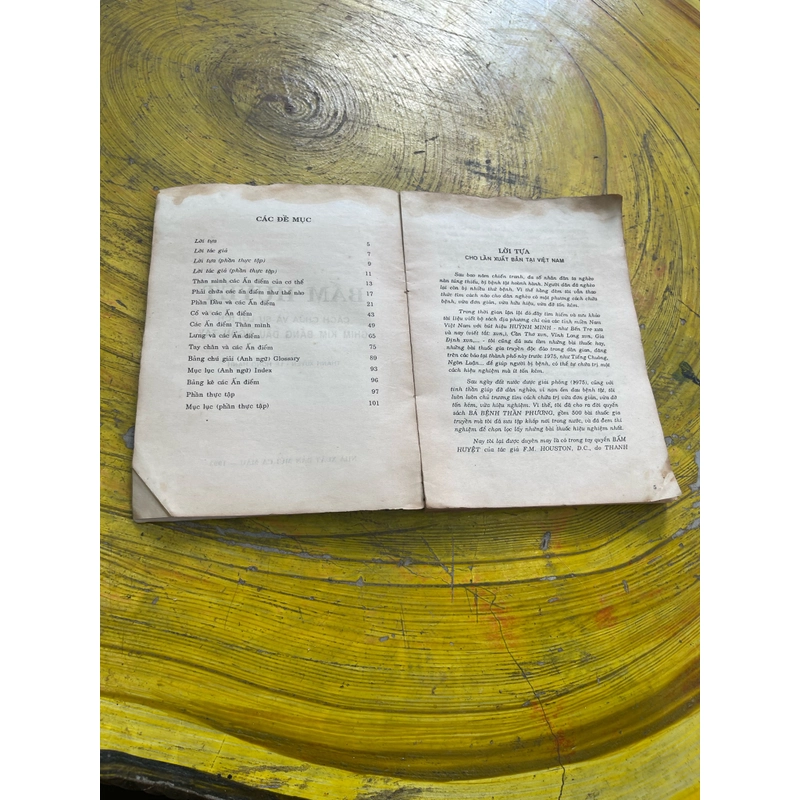 CÁC ĐỀ MỤC
Lời tựa 5
Lời tác giả 7
Lời tựa (phần thực tập) 9
Lời tác giả (phần thực tập) 11
Thân mình các Ấn điểm của cơ thể 13
Phải chữa các ấn điểm như thế nào 17
Phần Đầu và các Ấn điểm 21
Cổ và các Ấn điểm 43
Các Ấn điểm Thân mình 49
Lưng và các Ấn điểm 65
Tay chân và các Ấn điểm 75
Bảng chú giải (Anh ngữ) Glossary 89
Mục lục (Anh ngữ) Index 93
Bảng kê các Ấn điểm 96
Phần thực tập 97
Mục lục (phần thực tập) 101
LỜI TỰA
CHO LẦN XUẤT BẢN TẠI VIỆT NAM
Sau bao năm chiến tranh, đa số nhân dân ta nghèo
nàn túng thiếu, bị bệnh tật hoành hành. Người dân đã nghèo
lại còn bị nhiều thứ bệnh. Vì thế hằng đêm tôi vẫn thao
thức tìm cách nào cho dân nghèo có một phương cách chữa
bệnh, vừa đơn giản, vừa hữu hiệu, vừa đỡ tốn kém.
Trong thời gian lặn lội đó đây tìm hiểu và sưu khảo
tài liệu viết bộ sách địa phương chí của các tỉnh miền Nam
Việt Nam với bút hiệu HUỲNH MINH - như Bến Tre xưa
và nay (viết tắt: xnn,), Cần Thơ xnn, Vĩnh Long xnn, Gia
Định xnn,... - tôi cũng đã sưu tầm những bài thuốc hay,
những bài thuốc gia truyền, độc đáo trong dân gian, đăng
trên các báo tại thành phố này trước 1975, như Tiếng Chuông,
Ngôn Luận... để giúp người bị bệnh, có thể tự chữa trị một
cách hiệu nghiệm mà ít tốn kém.
Sau ngày đất nước được giải phóng (1975), cũng với
tinh thần giúp đỡ dân nghèo, vì nạn ốm đau bệnh tật, tôi
luôn luôn chủ trương tìm cách chữa trị vừa đơn giản, vừa đỡ
tốn kém, vừa hiệu nghiệm. Vì thế, tôi đã cho ra đời quyển
sách BÁ BỆNH THẦN PHƯƠNG, gồm 500 bài thuốc gia
truyền mà tôi đã sưu tập khắp nơi trong nước, và đã đem thí
nghiệm để chọn lọc lấy những bài thuốc hiệu nghiệm nhất.
Nay tôi lại được duyên may là có trong tay quyển BẤM
HUYỆT của tác giả F.M. HOUSTON, D.C., do THANH
5